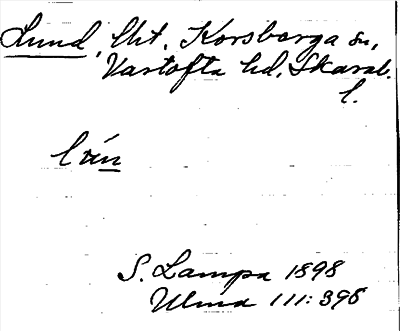 Lund, Utt. Korsberga sn,
Vartofta hd. Skarab.
l.
lún
S. Lampa 1898
Ulma 111:398